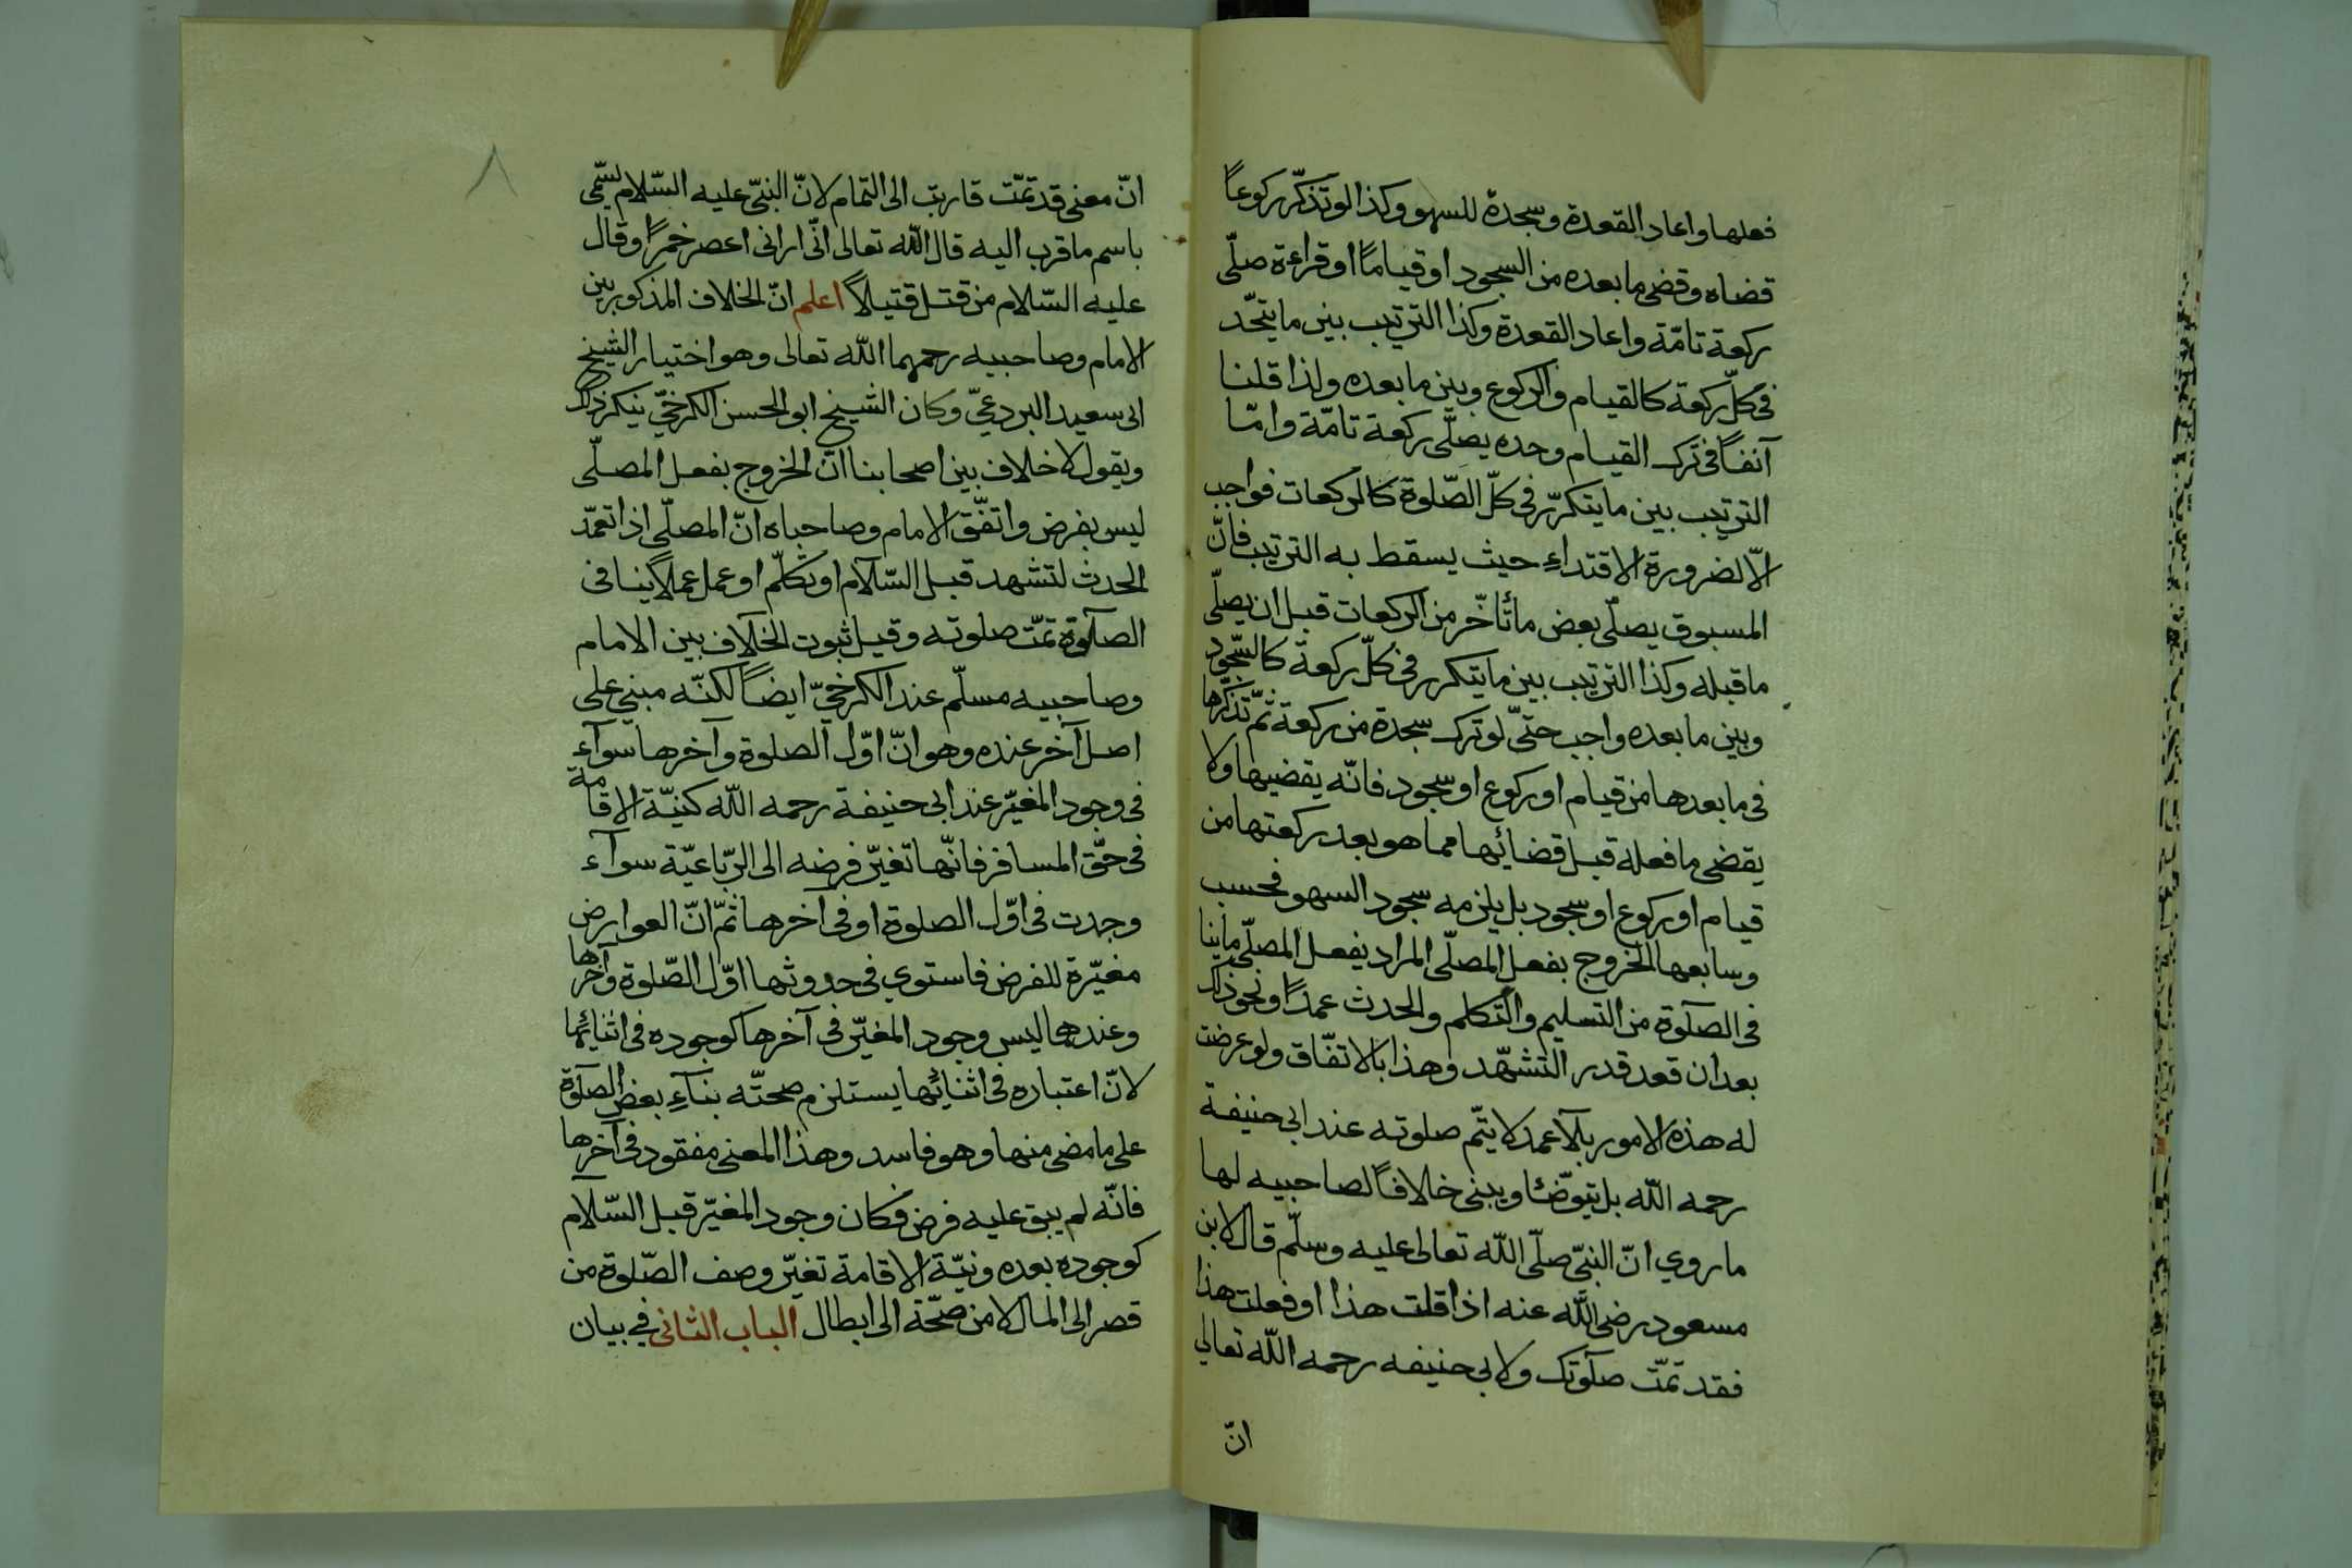 فعلها واعاد القعدة وسجدة للسهو وكذا لو تذكّر ركوعاً
قضاه وقضى ما بعده من السجود او قياماً او قراءة صلّى
ركعة تامّة واعاد القعدة وكذا الترتيب بين ما يتّحد
فى كلّ ركعة كالقيام والركوع وبين ما بعده ولذا قلنا
آنفاً فى ترك القيام وحده يصلّى ركعة تامّة وامّا
الترتيب بين ما يتكرّر فى كلّ الصّلوة كالركعات فواجب
الّا لضرورة الاقتداء حيث يسقط به الترتيب فانّ
المسبوق يصلّى بعض ما تأخّر من الركعات قبل ان يصلّى
ما قبله وكذا الترتيب بين ما يتكرر فى كلّ ركعة كالسّجود
وبين ما بعده واجب حتّى لو ترك سجدة من ركعة ثمّ تذكّرها
فى ما بعدها من قيام او ركوع او سجود فانّه يقضيها ولا
يقضى ما فعله قبل قضائها مما هو بعد ركعتها من
قيام او ركوع او سجود بل يلزمه سجود السهو فحسب
وسابعها الخروج بفعل المصلّى المراد بفعل المصلّى ما ينا
فى الصلوة من التسليم والتكلم والحدث عمداً ونحو ذلك
بعد ان قعد قدر التشهّد وهذا بالاتفّاق ولو عرضت
له هذه الامور بلا عمد لا يتّم صلوته عند ابى حنيفة
رحمه اللّه بل يتوضّئا ويبنى خلافاً لصاحبيه لها
ما روي انّ النبّى صلّى اللّه تعالى عليه وسلّم قال لابن
مسعود رضى اللّه عنه اذا قلت هذا او فعلت هذا
فقد تمّت صلوتك ولابى حنيفه رحمه اللّه تعالى
انّ
٨
انّ معنى قد تمّت قاربت الى التمام لانّ النبىّ عليه السّلام يسمّى
باسم ما قرب اليه قال اللّه تعالى انّى ارانى اعصر خمراً وقال
عليه السّلام من قتل قتيلاً اعلم انّ الخلاف المذكور بين
الامام وصاحبيه رحمهما اللّه تعالى وهو اختيار الشيخ
ابى سعيد البردعىّ وكان الشيخ ابو الحسن الكرخىّ ينكر ذلك
ويقول لا خلاف بين اصحابنا انّ الخروج بفعل المصلّى
ليس بفرض واتفّق الامام وصاحباه انّ المصلّى اذا تعمّد
الحدث لتشهد قبل السّلام او تكلّم او عمل عملاً ينافى
الصلوة تمّت صلوته وقيل ثبوت الخلاف بين الامام
وصاحبيه مسلّم عند الكرخىّ ايضاً لكنّه مبنى على
اصل آخر عنده وهو انّ اوّل الصلوة وآخرها سوآء
فى وجود المغيّر عند ابى حنيفة رحمه اللّه كنيّة الاقامة
فى حقّ المسافر فانّها تغيّر فرضه الى الربّاعيّة سوآء
وجدت فى اوّل الصلوة او فى آخرها ثمّ انّ العوارض
مغيّرة للفرض فاستوي فى حدوثها اوّل الصّلوة وآخرها
وعندهما ليس وجود المغيّر فى آخرها كوجوده فى اثنائها
لانّ اعتباره فى اثنائها يستلزم صحتّه بنآء بعض الصلوة
على ما مضى منها وهو فاسد وهذا المعنى مفقود فى آخرها
فانّه لم يبق عليه فرض فكان وجود المغيّر قبل السّلام
كوجوده بعده ونيّة الاقامة تغيّر وصف الصّلوة من
قصر الى المال لا من صحّة الى ابطال الباب الثانى في بيان